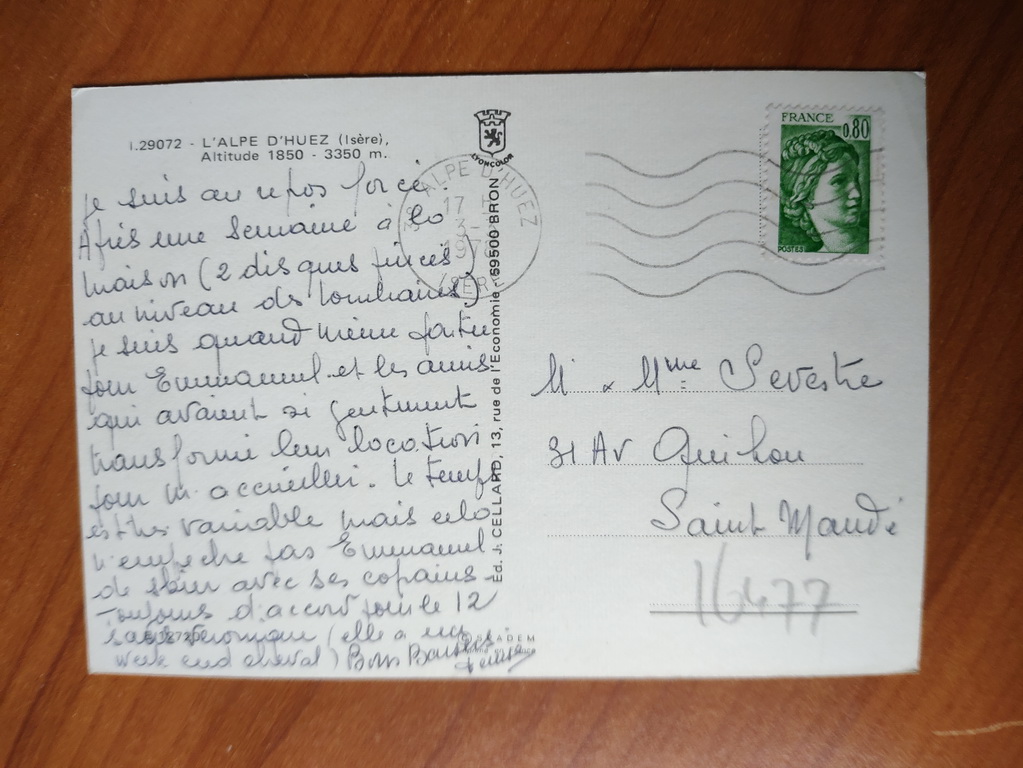 I.29072 - L'ALPE D'HUEZ (Isère),
Altitude 1850 - 3350 m.
Je suis au repos forcé.
Après une semaine à la
maison (2 disques pincés
au niveau des lombaires)
je suis quand même partie
pour Emmanuel et les amis
qui avaient si gentiment
transformé leur location
pour m'accueillir. Le temps
est très variable mais cela
n'empêche pas Emmanuel
de skier avec ses copains.
Toujours d'accord pour le 12
sans Véronique (elle a un
week end cheval) Bons Baisers
LYONCOLOR
Éd. J. CELLARD, 13, rue de l'Économie - 69500 BRON
ALPE D'HUEZ
17 H
3-
1978
ISERE
FRANCE
0,80
POSTES
M & Mme Sevestre
31 Av Quihou
Saint Mandé
16477